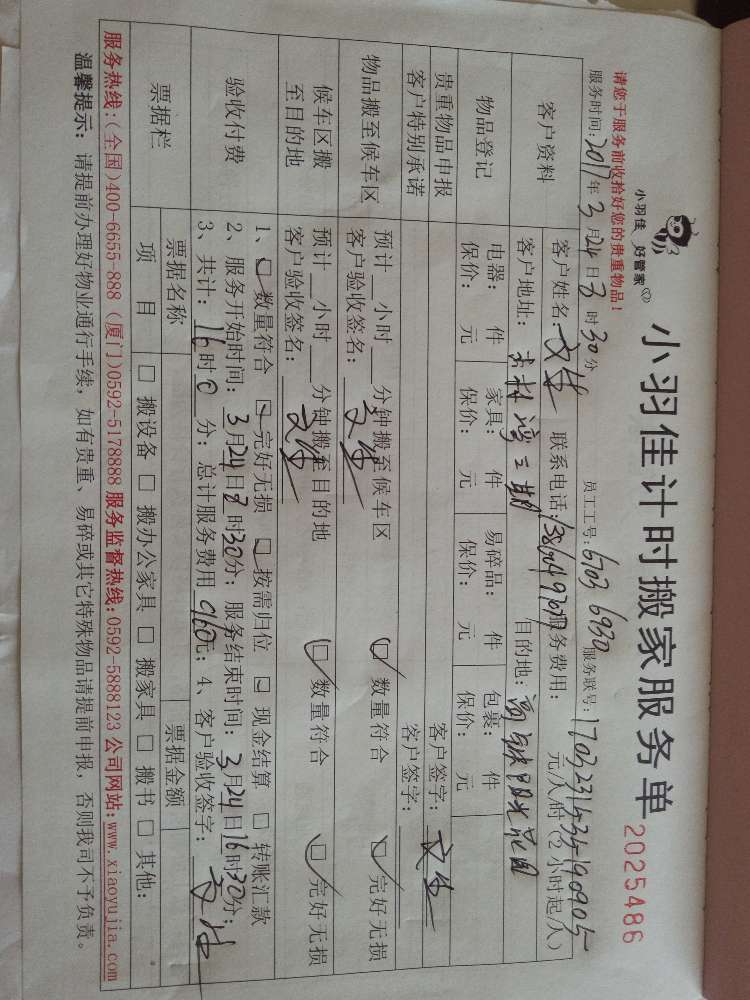 小羽佳 好管家
小羽佳计时搬家服务单
2025486
请您于服务前收拾好您的贵重物品！
服务时间：2017年3月24日8时30分 员工工号：6703 6930 服务联号：
客户资料
客户姓名： 联系电话： 服务费用： 元/人/时（2小时起/人）
客户地址： 二期 目的地： 高铁阳光花园
物品登记
电器： 件 家具： 件 易碎品： 件 包裹： 件
保价： 元 保价： 元 保价： 元 保价： 元
贵重物品申报 客户签字：
客户特别承诺 客户签字：
物品搬至候车区
预计 小时 分钟搬至候车区 □ 数量符合 □ 完好无损
客户验收签名：
候车区搬至目的地
预计 小时 分钟搬至目的地 □ 数量符合 □ 完好无损
客户验收签名：
验收付费
1、□ 数量符合 □ 完好无损 □ 按需归位 □ 现金结算 □ 转账汇款
2、服务开始时间：3月24日8时30分；服务结束时间：3月24日16时30分；
3、共计：16时0分；总计服务费用960元；4、客户验收签字：
票据栏
票据名称 票据金额
项 目 □ 搬设备 □ 搬办公家具 □ 搬家具 □ 搬书 □ 其他：
服务热线：（全国）400-6655-888（厦门）0592-5178888 服务监督热线：0592-5888123 公司网站：www.xiaoyujia.com
温馨提示：请提前办理好物业通行手续，如有贵重、易碎或其它特殊物品请提前申报，否则我司不予负责。